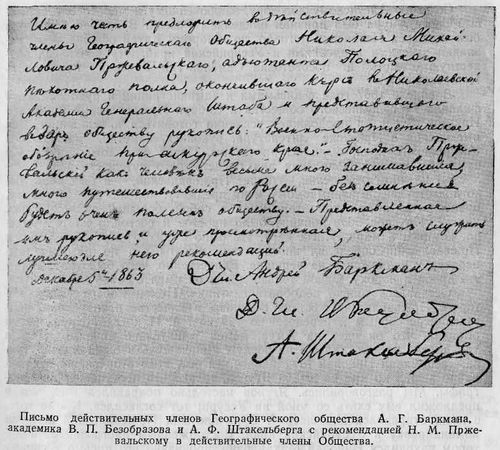 Имею честь предложить въ дѣйствительные
члены Географическаго Общества Николая Михай-
ловича Пржевальскаго, адъютанта Полоцкаго
пѣхотнаго полка, окончившаго курсъ въ Николаевской
Академіи Генеральнаго Штаба и представившаго
въ даръ обществу рукопись: "Военно-Статистическое
обозрѣніе Приамурскаго края". – Господинъ Прже-
вальскій какъ человѣкъ весьма много занимавшійся
много путешествовавшій по Россіи – безъ сомнѣнія
будетъ очень полезенъ обществу. – Представленная
имъ рукопись, и уже просмотрѣнная, можетъ служить
для него рекомендаціей.
Декабря 5го 1863
Д. Чл. Андрей Баркманъ
Д. Чл.
А. Штакельбергъ
Письмо действительных членов Географического общества А. Г. Баркмана,
академика В. П. Безобразова и А. Ф. Штакельберга с рекомендацией Н. М. Прже-
вальскому в действительные члены Общества.